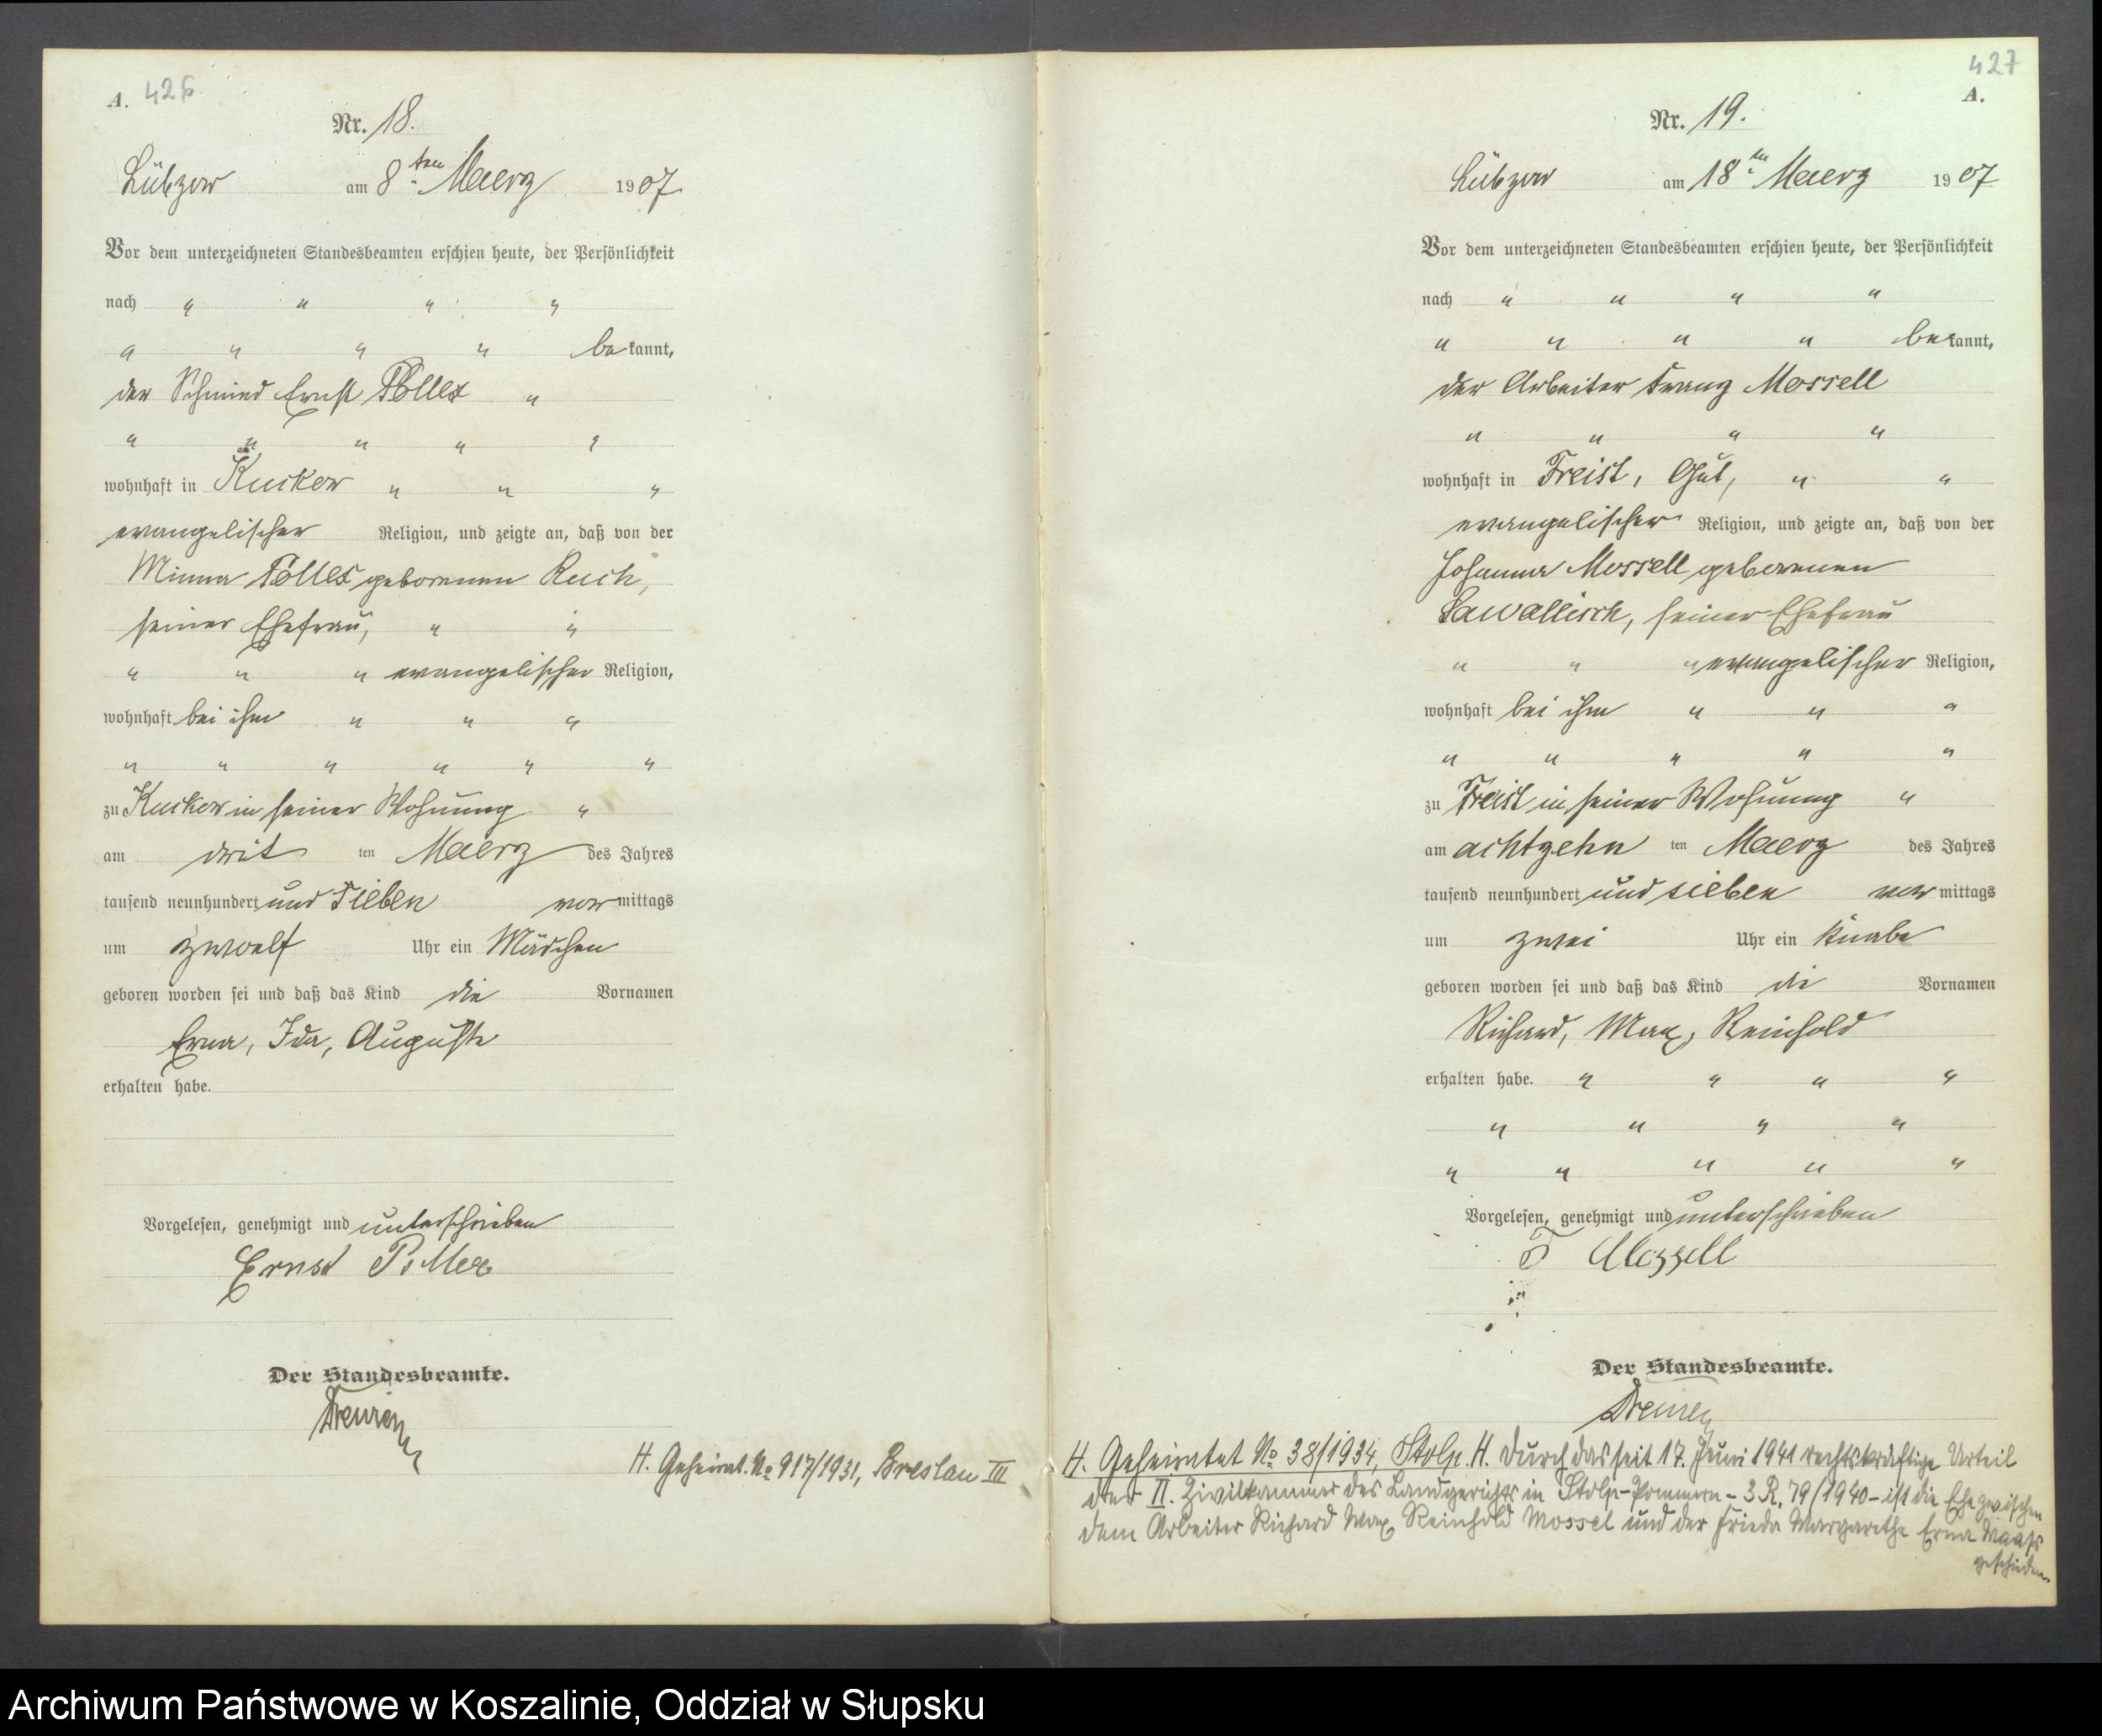 A. 426
Nr. 18.
Lübzow am 8ten Maerz 1907.
Vor dem unterzeichneten Standesbeamten erschien heute, der Persönlichkeit
nach " " " "
" " " " bekannt,
der Schmied Ernst "
" " " " "
wohnhaft in Kuckow " " "
evangelischer Religion, und zeigte an, daß von der
Minna geborenen
seiner Ehefrau, " "
" " " evangelischer Religion,
wohnhaft bei ihm " " "
" " " " " "
zu Kuckow in seiner Wohnung "
am drit ten Maerz des Jahres
tausend neunhundert und sieben vormittags
um zwoelf Uhr ein Mädchen
geboren worden sei und daß das Kind die Vornamen
Erna, Ida, Auguste
erhalten habe.
Vorgelesen, genehmigt und unterschrieben
Ernst
Der Standesbeamte.
H. Geheirat. No 917/1931, Breslau III
427
A.
Nr. 19.
Lübzow am 18ten Maerz 1907
Vor dem unterzeichneten Standesbeamten erschien heute, der Persönlichkeit
nach " " " "
" " " " bekannt,
der Arbeiter Franz Mossell
" " " "
wohnhaft in Freist, Gut, " "
evangelischer Religion, und zeigte an, daß von der
Johanna Mossell geborenen
Sawallisch, seiner Ehefrau
" " " evangelischer Religion,
wohnhaft bei ihm " " "
" " " " "
zu Freist in seiner Wohnung "
am achtzehn ten Maerz des Jahres
tausend neunhundert und sieben vormittags
um zwei Uhr ein Knabe
geboren worden sei und daß das Kind die Vornamen
Richard, Max, Reinhold
erhalten habe. " " " "
" " " "
" " " " "
Vorgelesen, genehmigt und unterschrieben
F Mossell
Der Standesbeamte.
H. Geheiratet No 38/1934, Stolp. H. Durch das seit 17. Juni 1941 rechtskräftige Urteil
der II. Zivilkammer des Landgerichts in Stolp-Pommern - 3 R. 79/1940 - ist die Ehe zwischen
dem Arbeiter Richard Max Reinhold Mossel und der Frieda Margarethe Erna Maass
geschieden.
Archiwum Państwowe w Koszalinie, Oddział w Słupsku